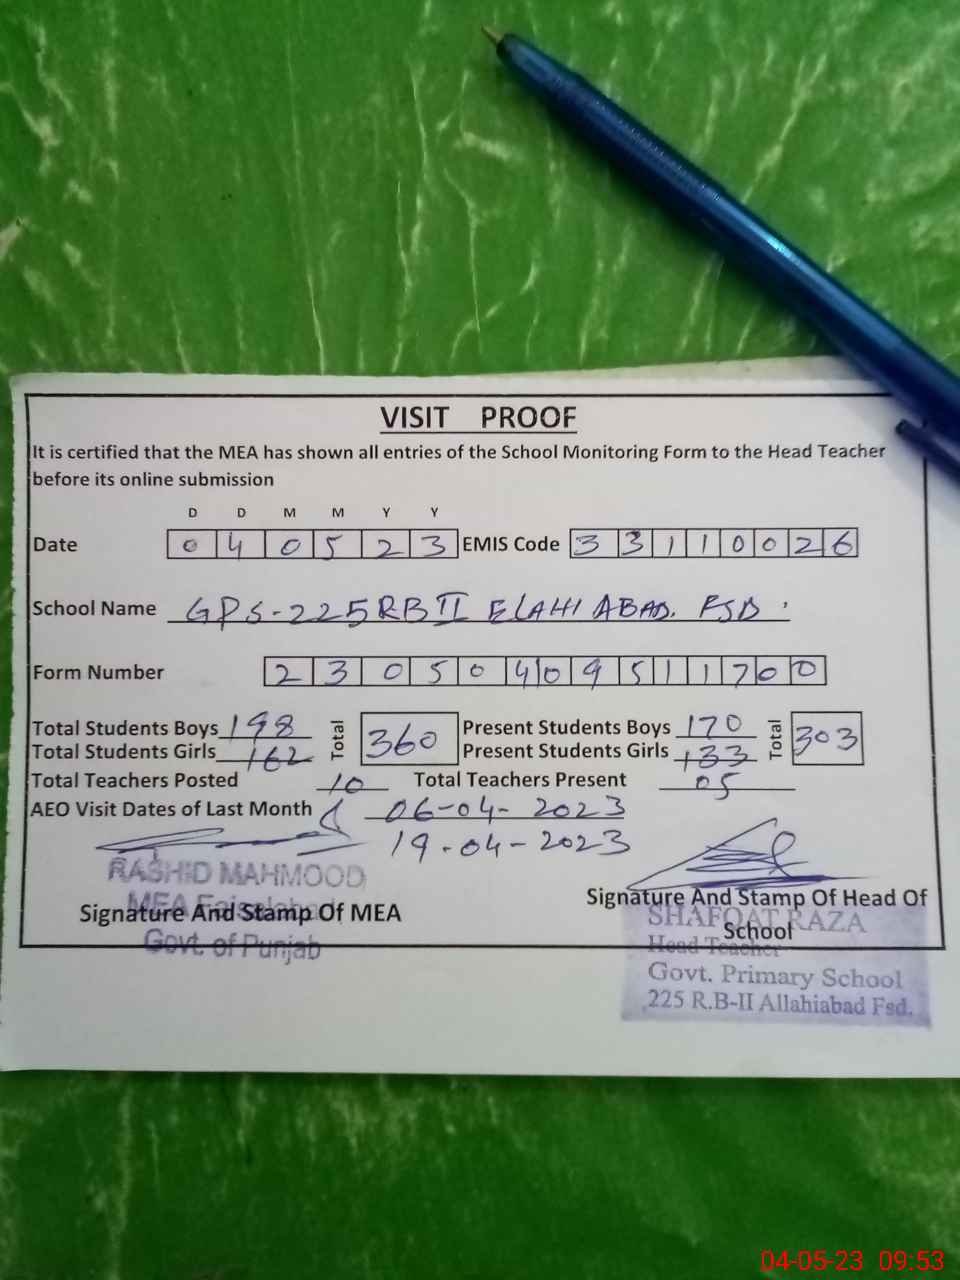 VISIT PROOF
It is certified that the MEA has shown all entries of the School Monitoring Form to the Head Teacher
before its online submission
D D M M Y Y
Date 0 4 0 5 2 3 EMIS Code 3 3 1 1 0 0 2 6
School Name GPS-225RB II ELAHI ABAD. FSD.
Form Number 2 3 0 5 0 4 0 9 5 1 1 7 0 0
Total Students Boys 198 Total 360 Present Students Boys 170 Total 303
Total Students Girls 162 Present Students Girls 133
Total Teachers Posted 10 Total Teachers Present 05
AEO Visit Dates of Last Month 06-04-2023
19-04-2023
RASHID MAHMOOD
MEA Faisalabad
Signature And Stamp Of MEA
Govt. of Punjab
Signature And Stamp Of Head Of
School
SHAFQAT RAZA
Head Teacher
Govt. Primary School
225 R.B-II Allahiabad Fsd.
04-05-23 09:53